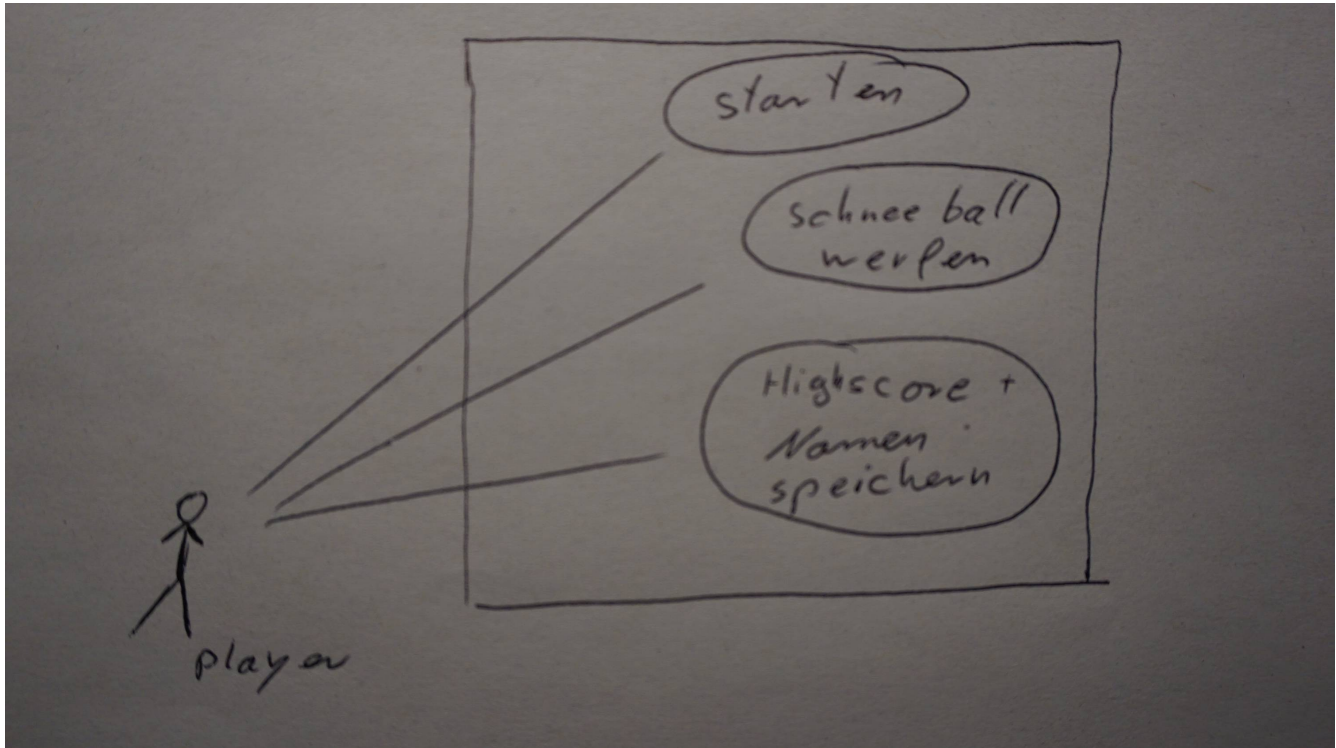 starten
schnee ball
werfen
Highscore +
Namen
speichern
player